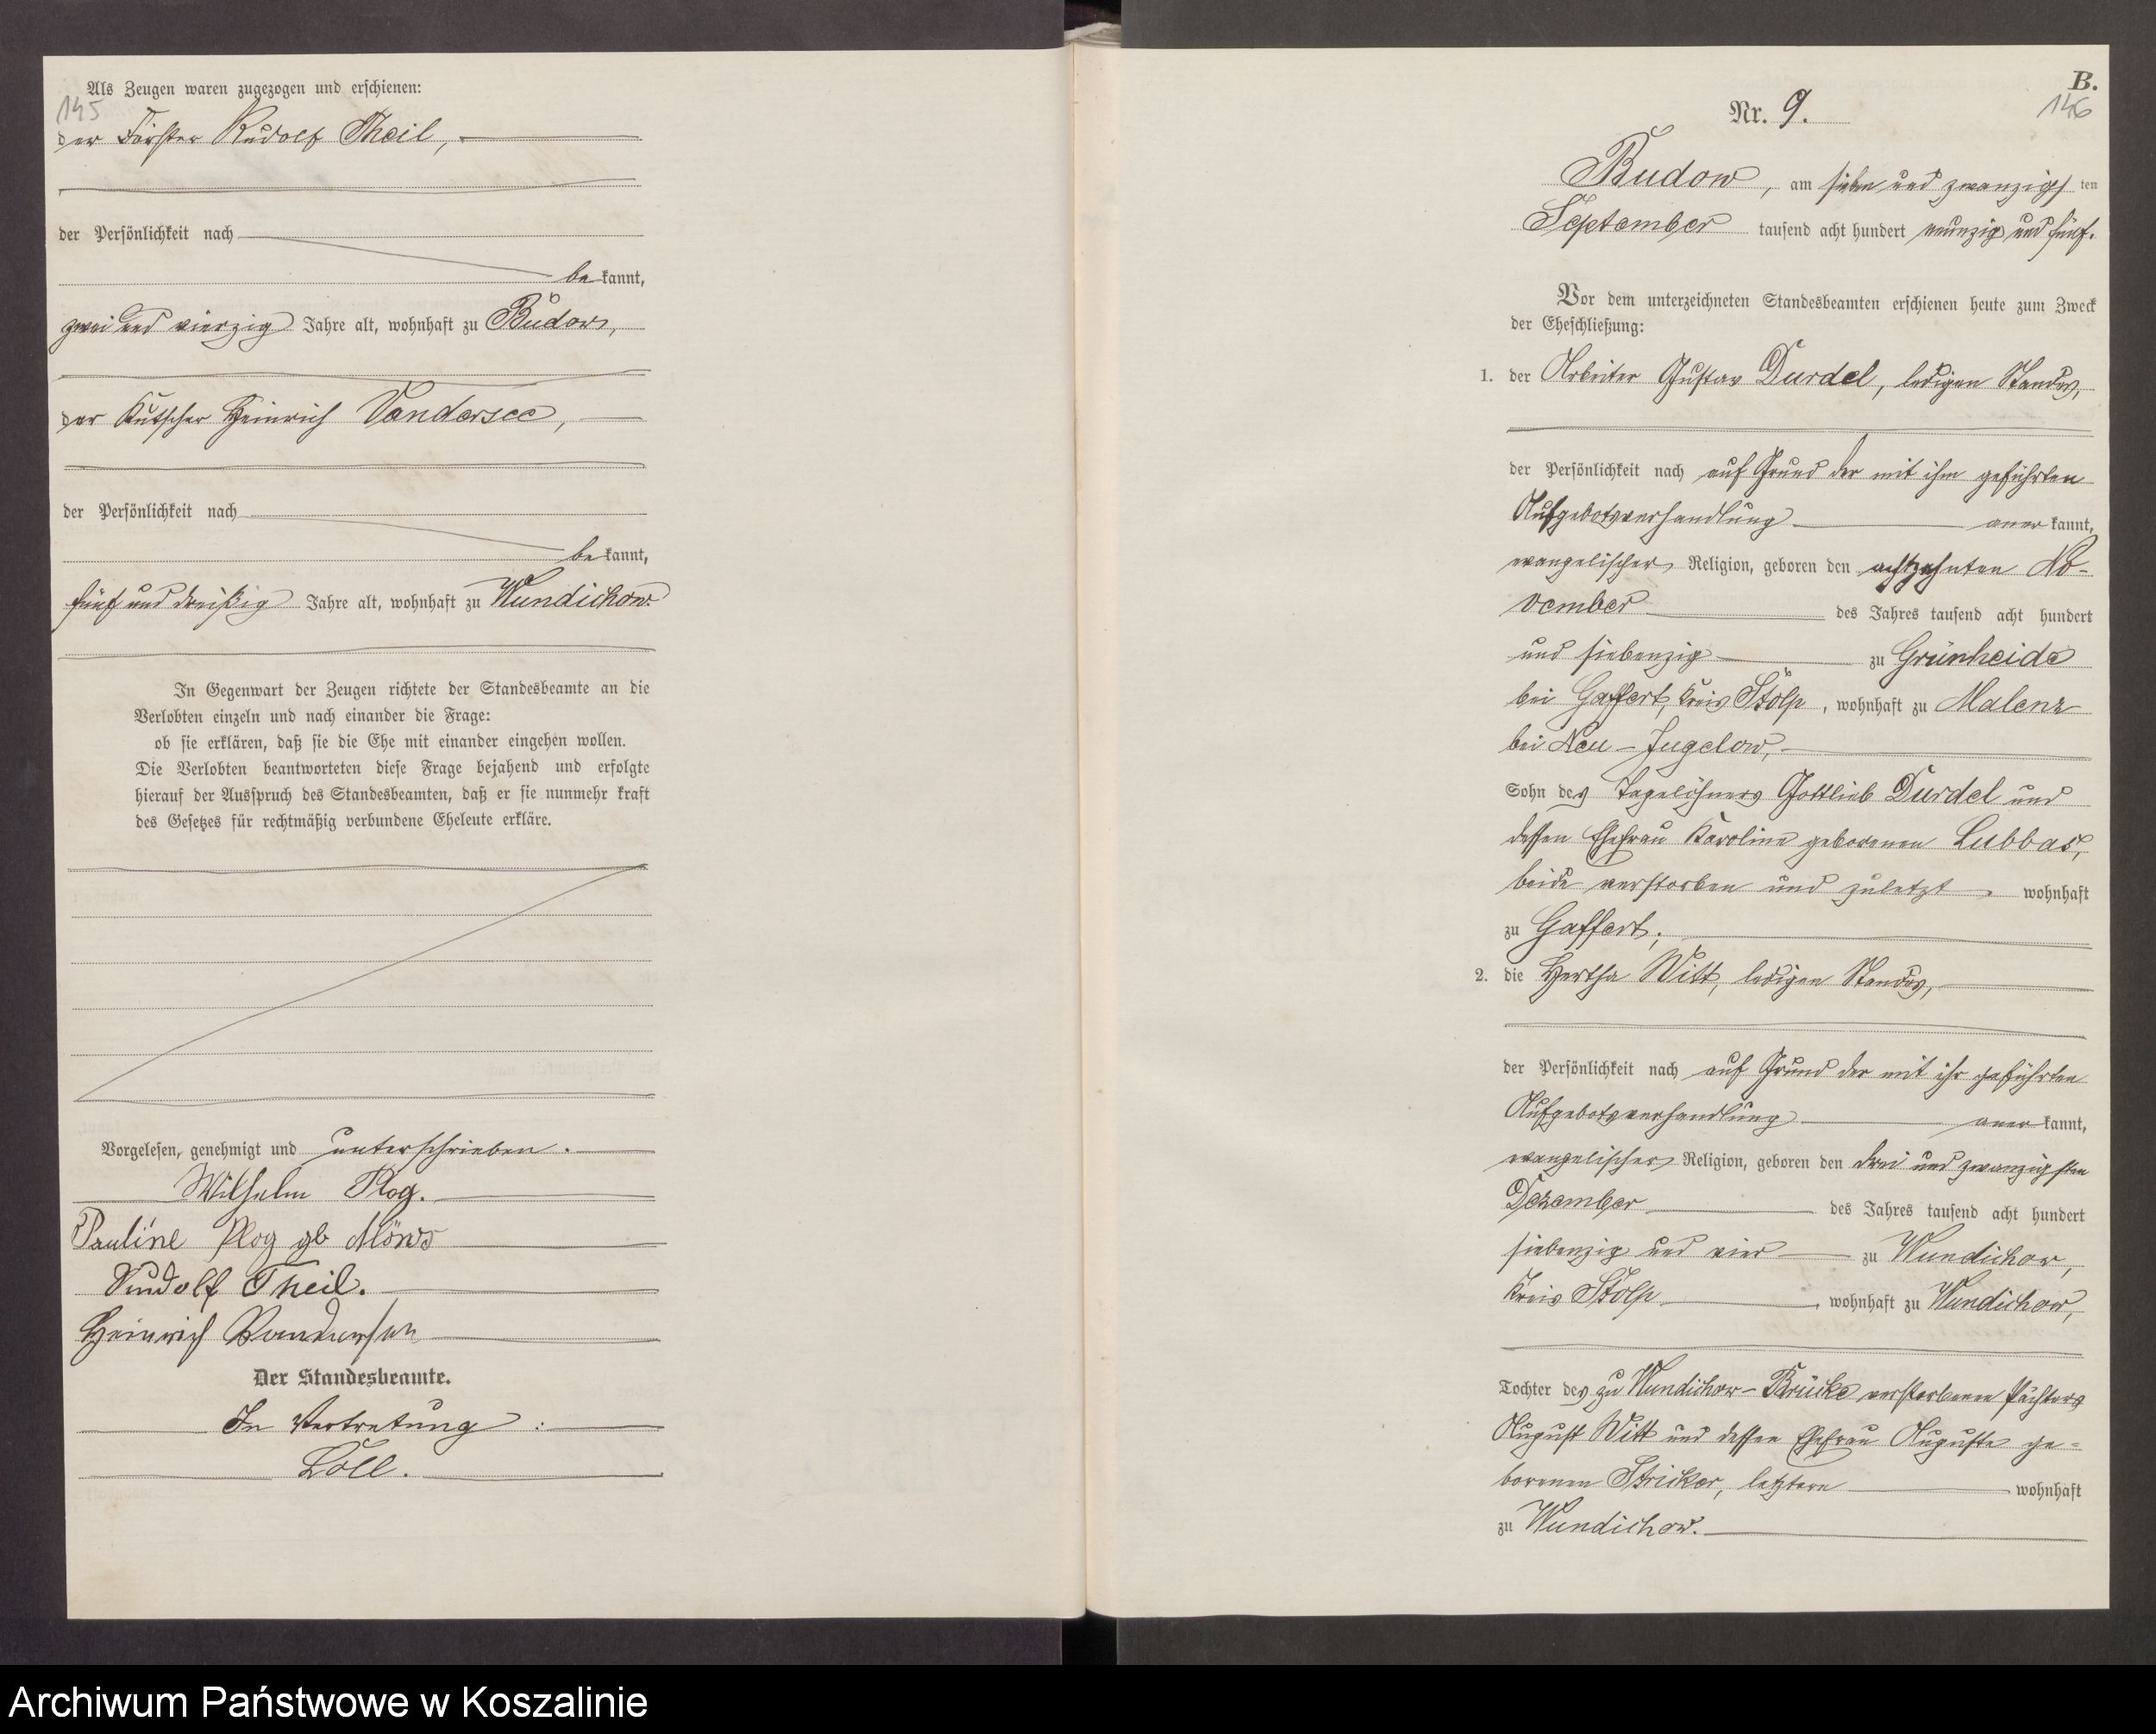 Als Zeugen waren zugezogen und erschienen:
145
der Förster Rudolf Theil,
der Persönlichkeit nach
bekannt,
zwei und vierzig Jahre alt, wohnhaft zu Budow,
der Kutscher Heinrich Vandersee,
der Persönlichkeit nach
bekannt,
fünf und dreißig Jahre alt, wohnhaft zu Wundichow.
In Gegenwart der Zeugen richtete der Standesbeamte an die
Verlobten einzeln und nach einander die Frage:
ob sie erklären, daß sie die Ehe mit einander eingehen wollen.
Die Verlobten beantworteten diese Frage bejahend und erfolgte
hierauf der Ausspruch des Standesbeamten, daß er sie nunmehr kraft
des Gesetzes für rechtmäßig verbundene Eheleute erkläre.
Vorgelesen, genehmigt und unterschrieben.
Wilhelm Plog.
Pauline Plog gb Möws
Rudolf Theil.
Heinrich Vandersee
Der Standesbeamte.
In Vertretung:
Löll.
B.
146
Nr. 9.
Budow, am sieben und zwanzigsten
September tausend acht hundert neunzig und fünf.
Vor dem unterzeichneten Standesbeamten erschienen heute zum Zweck
der Eheschließung:
1. der Arbeiter Gustav Durdel, ledigen Standes,
der Persönlichkeit nach auf Grund der mit ihm geführten
Aufgebotsverhandlung anerkannt,
evangelischer Religion, geboren den achtzehnten No-
vember des Jahres tausend acht hundert
und siebenzig zu Grünheide
bei Gaffert, Kreis Stolp, wohnhaft zu Malenz
bei Neu-Jugelow,
Sohn des Tagelöhners Gottlieb Durdel und
dessen Ehefrau Karoline geborenen Lubbas,
beide verstorben und zuletzt wohnhaft
zu Gaffert;
2. die Hertha Witt, ledigen Standes,
der Persönlichkeit nach auf Grund der mit ihr geführten
Aufgebotsverhandlung anerkannt,
evangelischer Religion, geboren den drei und zwanzigsten
Dezember des Jahres tausend acht hundert
siebenzig und vier zu Wundichow,
Kreis Stolp, wohnhaft zu Wundichow,
Tochter des zu Wundichow-Brücke verstorbenen Pächters
August Witt und dessen Ehefrau Auguste ge-
borenen Stricker, letztere wohnhaft
zu Wundichow.
Archiwum Państwowe w Koszalinie